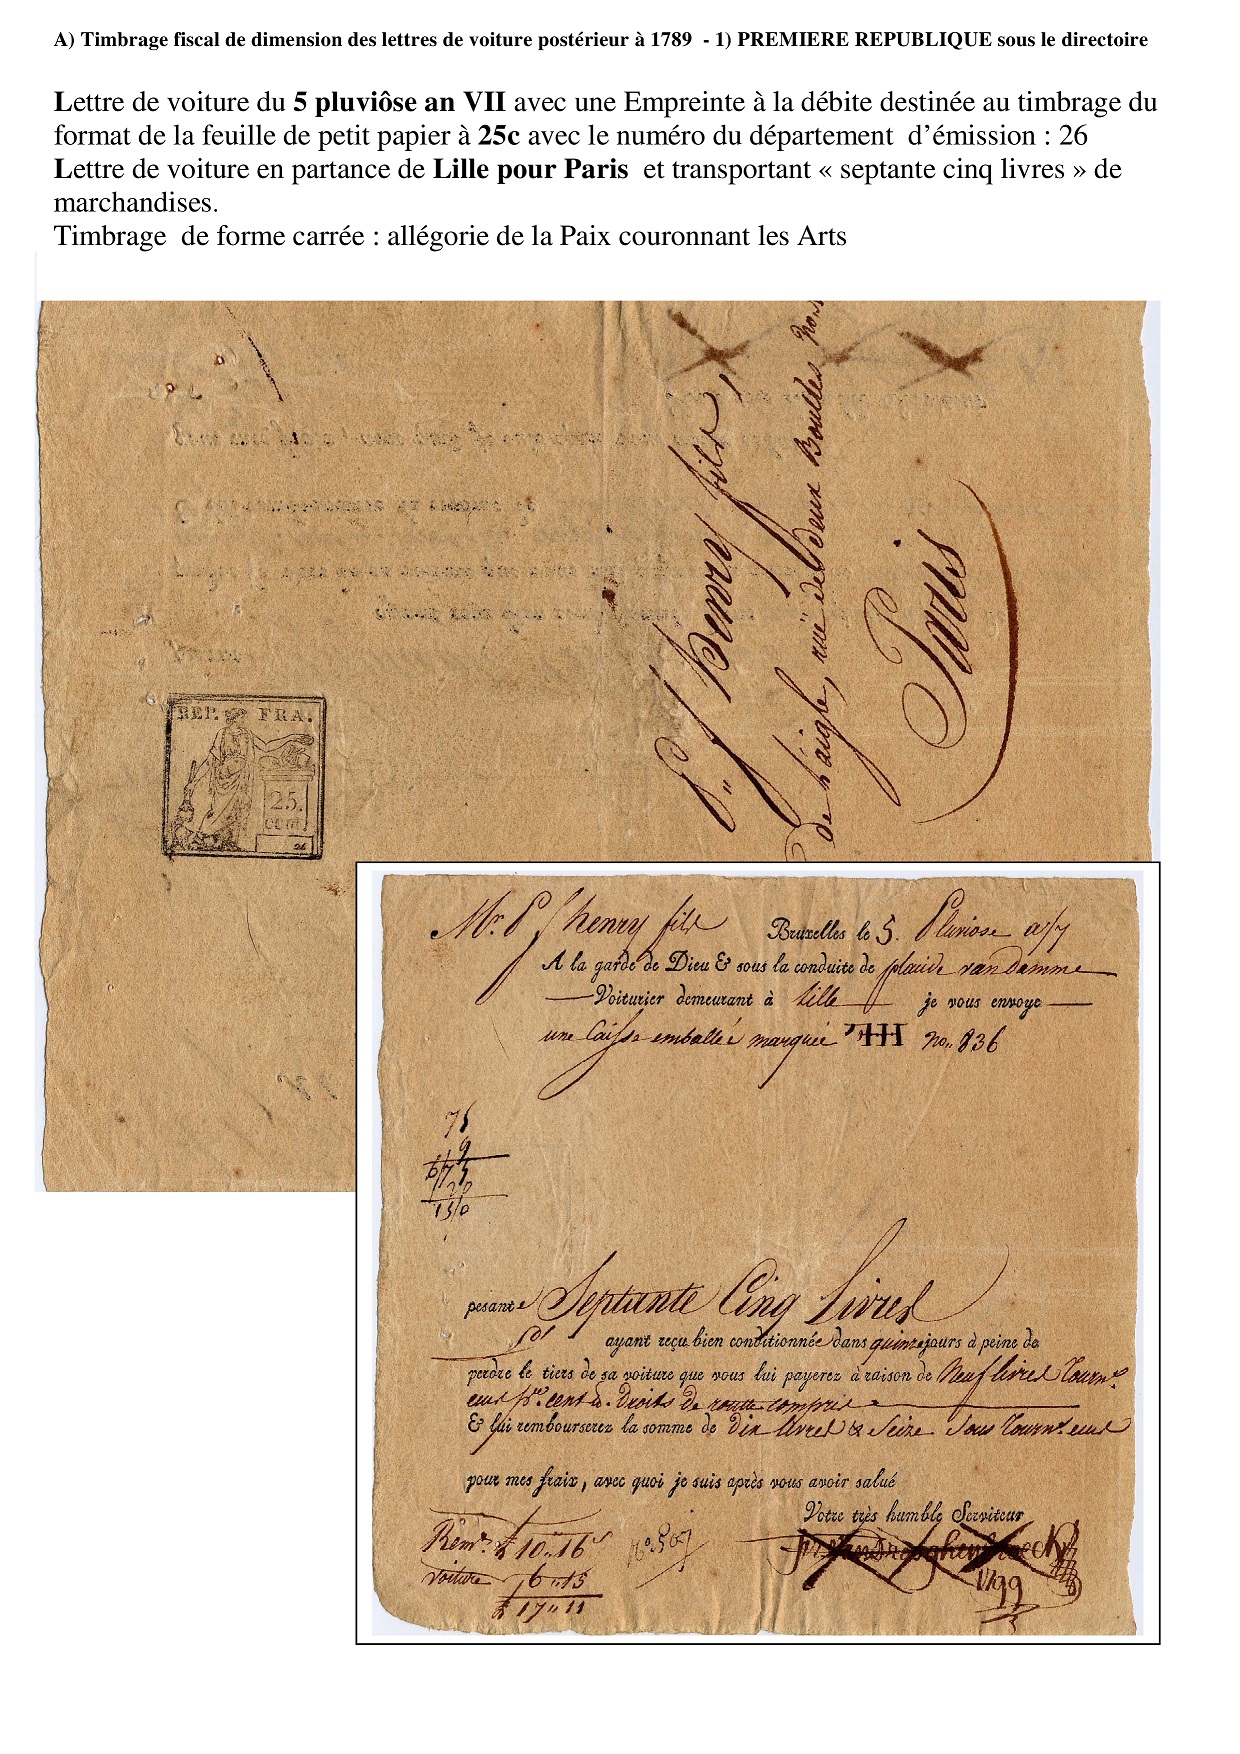 A) Timbrage fiscal de dimension des lettres de voiture postérieur à 1789 - 1) PREMIERE REPUBLIQUE sous le directoire
Lettre de voiture du 5 pluviôse an VII avec une Empreinte à la débite destinée au timbrage du
format de la feuille de petit papier à 25c avec le numéro du département d’émission : 26
Lettre de voiture en partance de Lille pour Paris et transportant « septante cinq livres » de
marchandises.
Timbrage de forme carrée : allégorie de la Paix couronnant les Arts
P. henry fils,
de L'aigle, rue des deux Boulles No.
Paris
REP. FRA.
25.
cent.
26
Mr. P henry fils Bruxelles le 5. Pluviose a/7
A la garde de Dieu & sous la conduite de placide van damme
Voiturier demeurant à Lille je vous envoye
une Caisse emballée marquée HH no. 836
75
9
675
20
13/0
pesant Septante Cinq Livres
ayant reçu bien conditionnée dans quinze jours à peine de
perdre le tiers de sa voiture que vous lui payerez à raison de Neuf livres Tourn.
cent Droits de routte compris
& lui rembourserez la somme de Dix Livres & Seize Sous Tourn.
pour mes fraix, avec quoi je suis après vous avoir salué
Votre très humble Serviteur
Rem. 10 16
voiture 6 15
17 11
1799